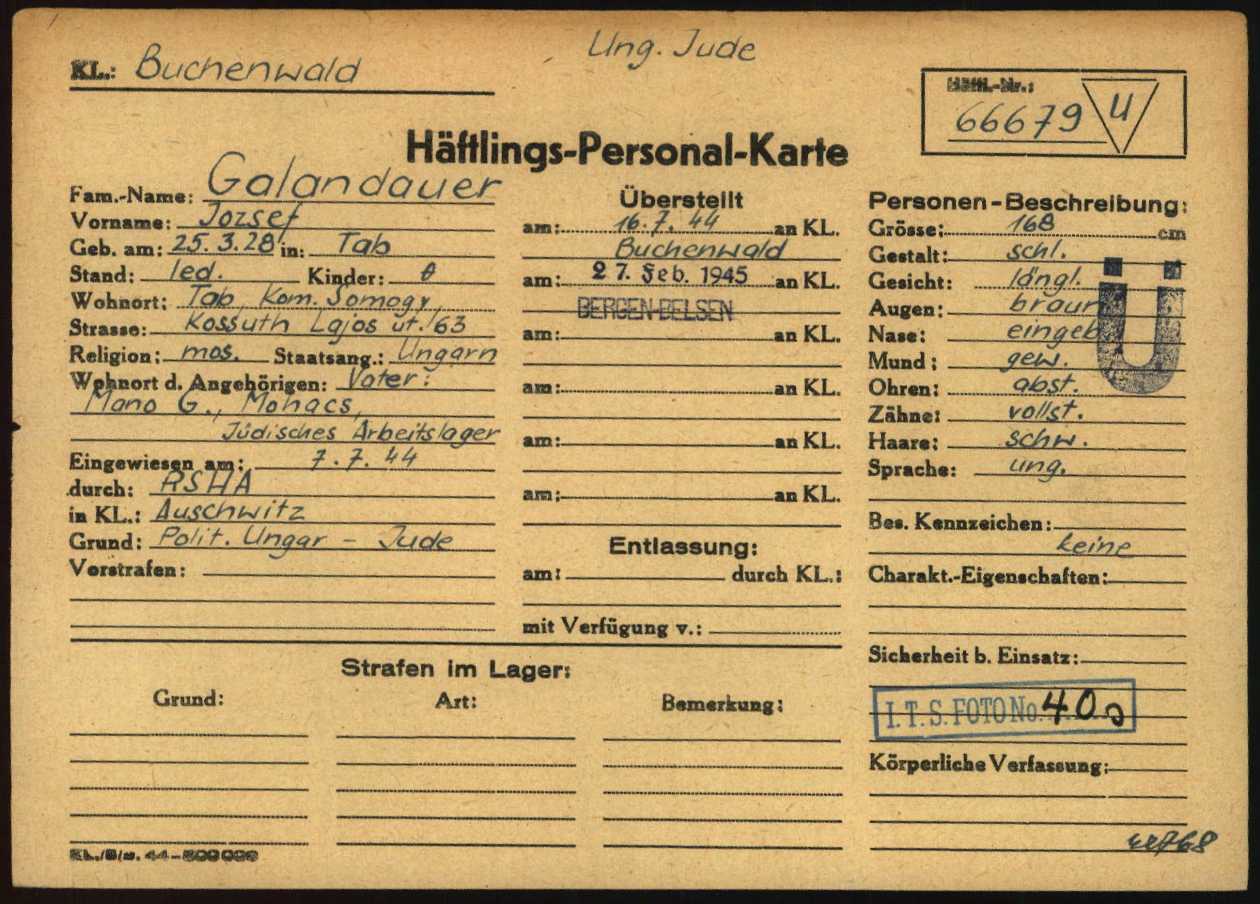 Ung. Jude
KL.: Buchenwald
Häftl.-Nr.:
66679 U
Häftlings-Personal-Karte
Fam.-Name: Galandauer
Vorname: Jozsef
Geb. am: 25.3.28 in: Tab
Stand: led. Kinder: 0
Wohnort: Tab, Kom. Somogy,
Strasse: Kossuth Lajos ut. 63
Religion: mos. Staatsang.: Ungarn
Wohnort d. Angehörigen: Vater:
Mano G., Mohacs,
Jüdisches Arbeitslager
Eingewiesen am: 7.7.44
durch: RSHA
in KL.: Auschwitz
Grund: Polit. Ungar - Jude
Vorstrafen:
Überstellt
am: 16.7.44 an KL.
Buchenwald
am: 27. Feb. 1945 an KL.
BERGEN-BELSEN
am: an KL.
am: an KL.
am: an KL.
am: an KL.
Entlassung:
am: durch KL.:
mit Verfügung v.:
Personen-Beschreibung:
Grösse: 168 cm
Gestalt: schl.
Gesicht: längl.
Augen: braun
Nase: eingeb.
Mund: gew.
Ohren: abst.
Zähne: vollst.
Haare: schw.
Sprache: ung.
Ü
Bes. Kennzeichen:
keine
Charakt.-Eigenschaften:
Sicherheit b. Einsatz:
I.T.S. FOTO No. 40
Körperliche Verfassung:
Strafen im Lager:
Grund: Art: Bemerkung: